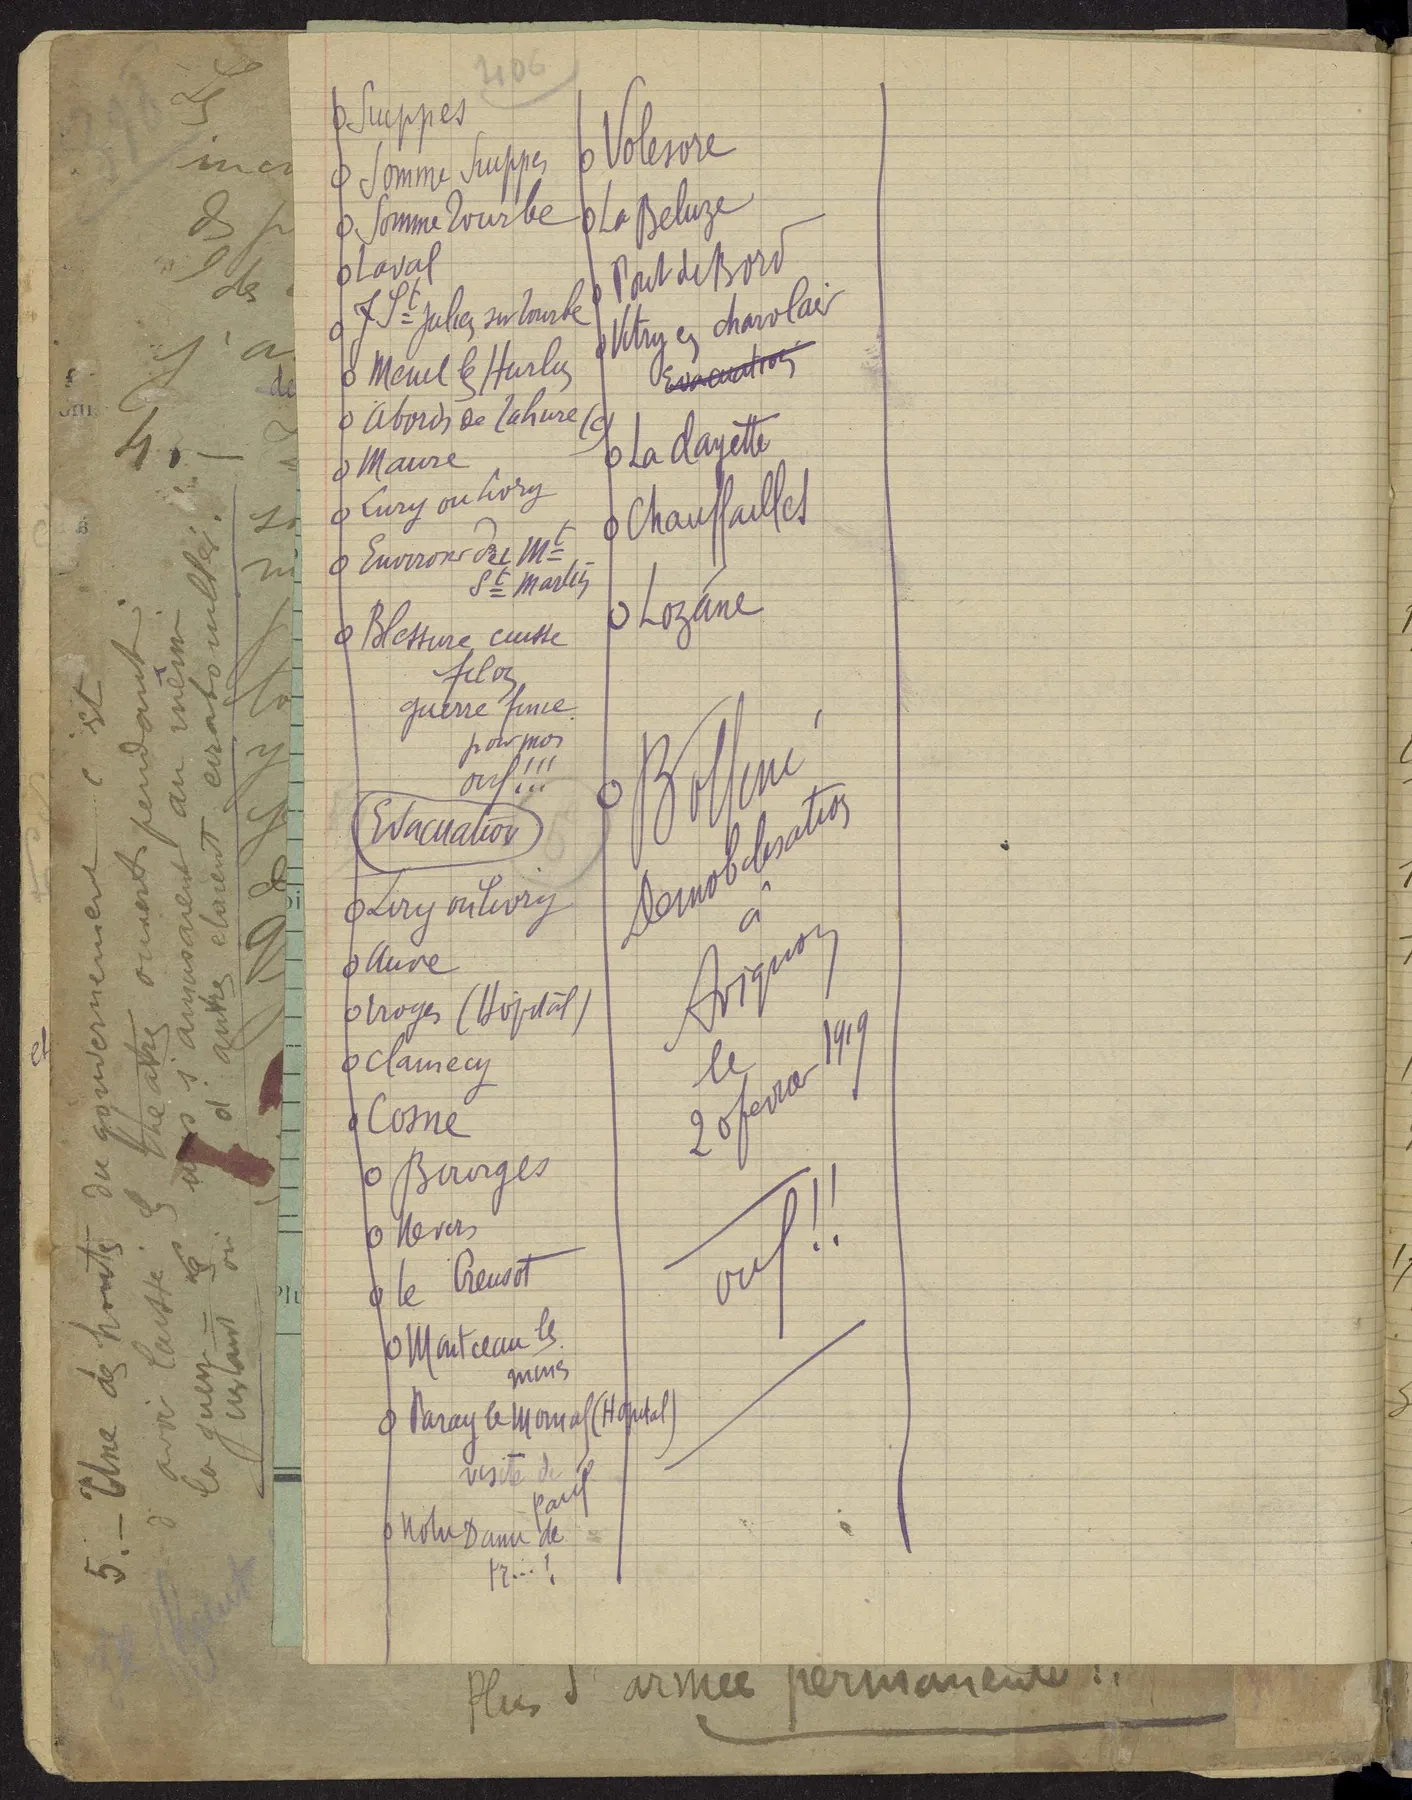 406
Suippes
Somme Suippes
Somme Tourbe
Laval
St Julien sur Tourbe
Menil les Hurlus
abords de Tahure (c)
Maure
Liry ou Livry
Environs des Mt
St Martin
Blessure cuisse
filon
guerre finie
pour moi
ouf!!!
Evacuation
Liry ou Livry
Auve
troyes (Hôpital)
Clamecy
Cosne
Bourges
Nevers
le Creusot
Montceau les
mines
Paray le Monial (Hopital)
visite de
Paris
Notre Dame de
tr...!
Volesvre
La Beluze
Pont de Bord
Vitry en charolais
Evacuation
La Clayette
Chauffailles
Lozane
Bollène
Demobilisation
à
Avignon
le
20 fevrier 1919
ouf!!
4. –
5. – Une des hontes du gouvernement c'est
d'avoir laissé les théâtres ouverts pendant
la guerre – les uns s'amusaient au même
instant où d'autres étaient crabouillés.
et
Plus d'armée permanente!.